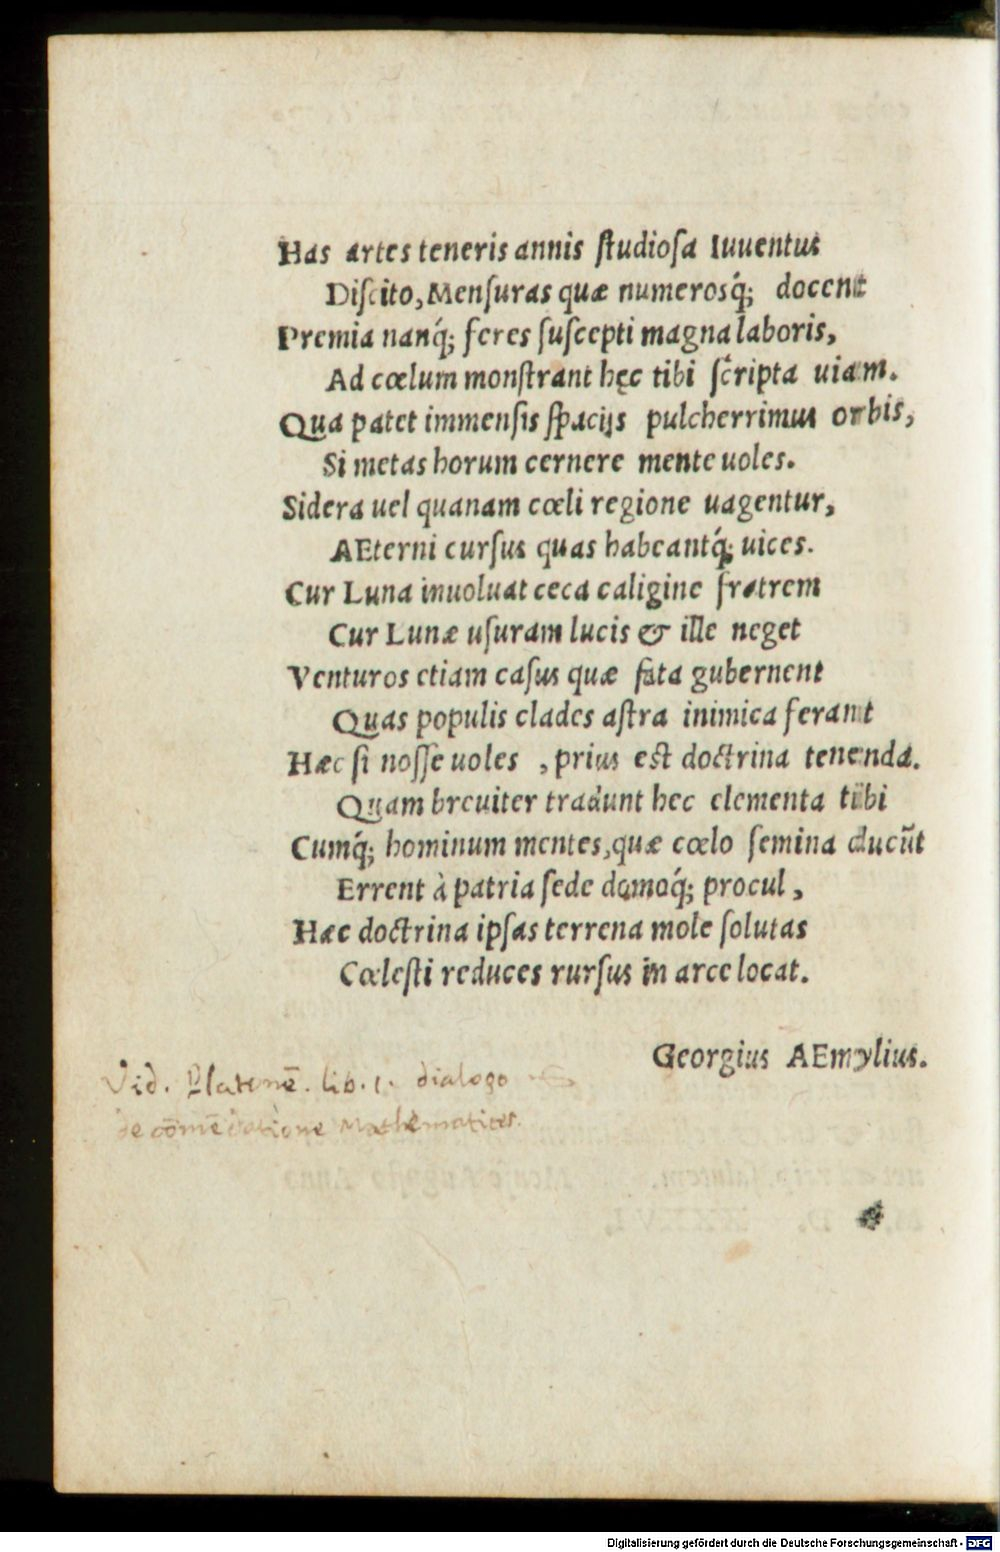 Has artes teneris annis ſtudioſa Iuuentus
Diſcito, Menſuras quæ numerosq́; docent
Premia nanq́; feres ſuſcepti magna laboris,
Ad cœlum monſtrant hęc tibi ſcripta uiam.
Qua patet immenſis ſpacijs pulcherrimus orbis,
Si metas horum cernere mente uoles.
Sidera uel quanam cœli regione uagentur,
AEterni curſus quas habeantq́; uices.
Cur Luna inuoluat ceca caligine fratrem
Cur Lunæ uſuram lucis & ille neget
Venturos etiam caſus quæ fata gubernent
Quas populis clades aſtra inimica ferant
Hæc ſi noſſe uoles , prius est doctrina tenenda.
Quam breuiter tradunt hec elementa tibi
Cumq́; hominum mentes, quæ cœlo ſemina ducũt
Errent à patria ſede domoq́; procul,
Hæc doctrina ipſas terrena mole ſolutas
Cœleſti reduces rurſus in arce locat.
Georgius AEmylius.
Vid. Platonē. lib. 1. dialogo
de cōmēdatione Mathematices.
Digitalisierung gefördert durch die Deutsche Forschungsgemeinschaft - DFG